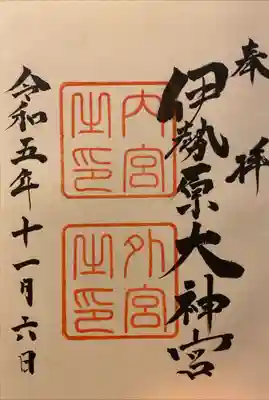 奉拝
伊勢原大神宮
内宮之印
外宮之印
令和五年十一月六日